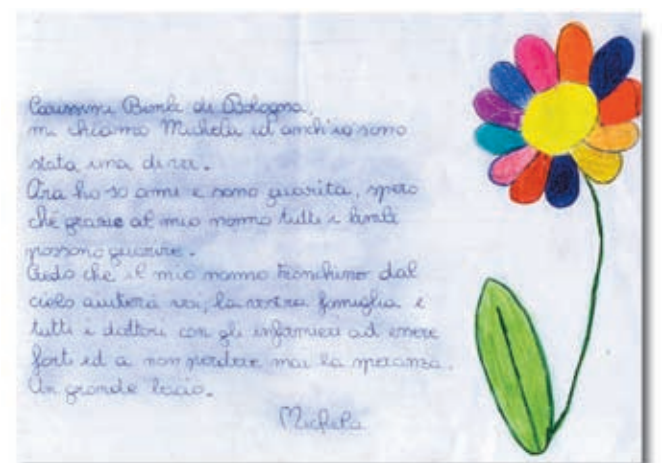 Carissimi Bimbi di Bologna,
mi chiamo Michela ed anch'io sono
stata una di voi.
Ora ho 10 anni e sono guarita, spero
che grazie al mio nonno tutti i bimbi
possono guarire.
Credo che il mio nonno Franchino dal
cielo aiuterà voi, la vostra famiglia e
tutti i dottori con gli infermieri ad essere
forti ed a non perdere mai la speranza.
Un grande bacio.
Michela